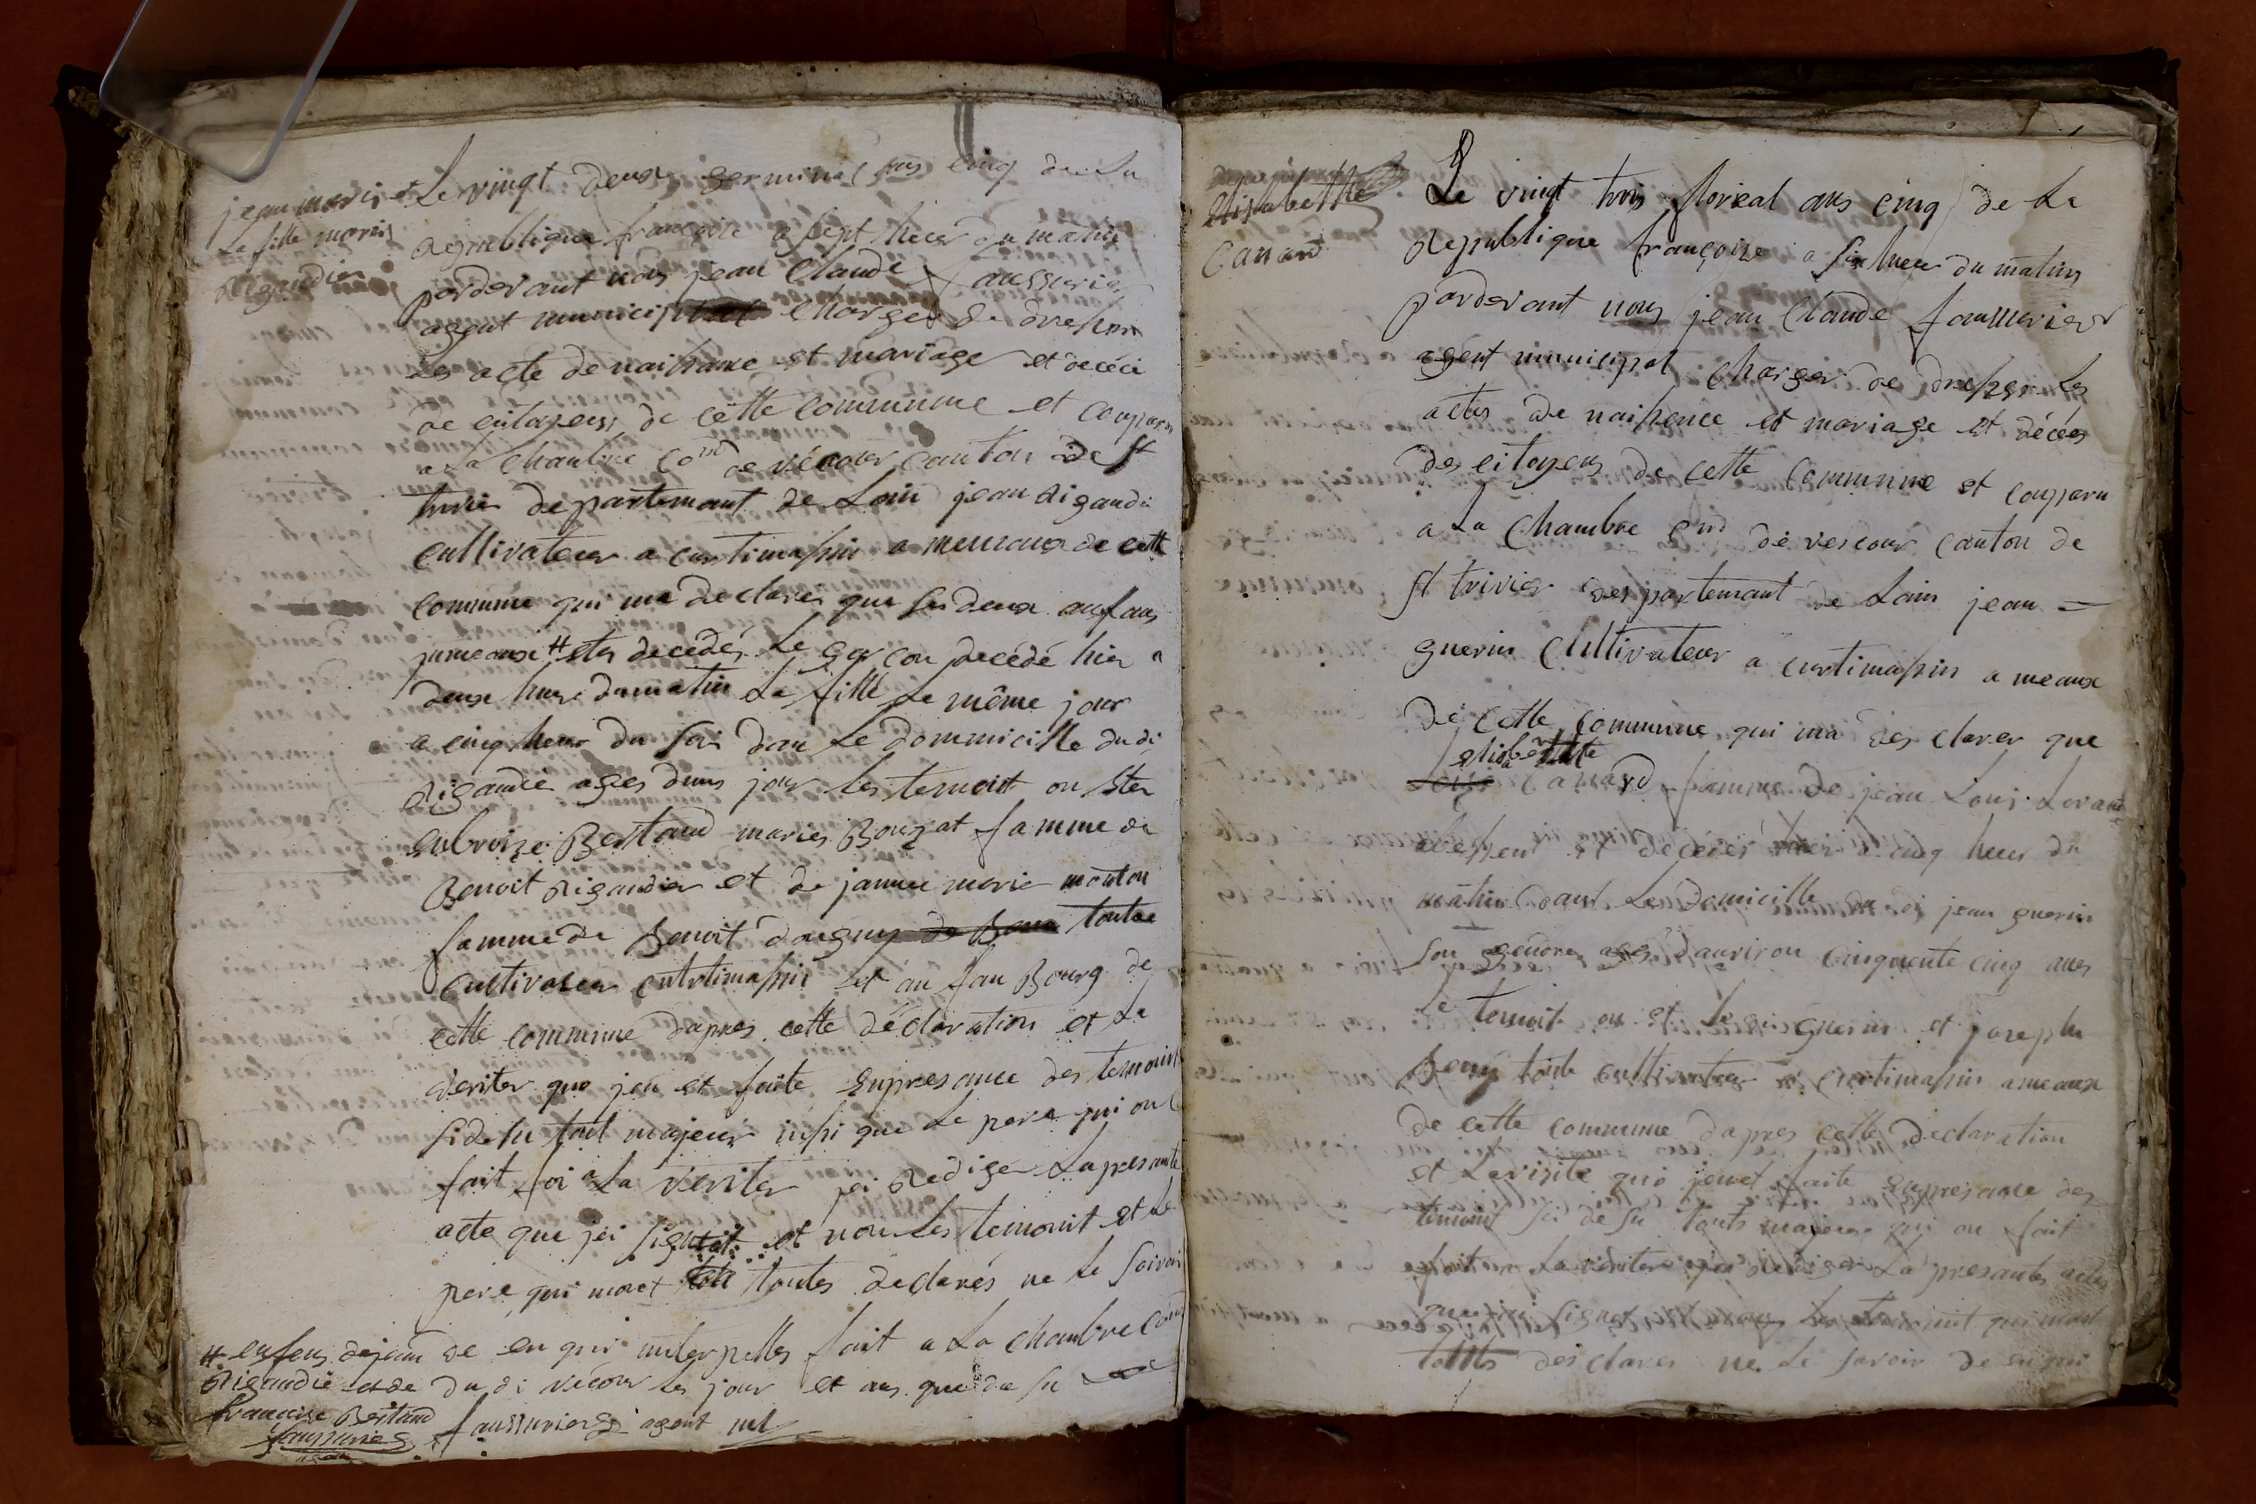 jean marie et
La fille marie
Rigaudie
Le vingt deux germinal ans cinq de La
Republique françoise a sept heur du matin
pardevant nous jean Claude faussurier
agent municipal Charger de dresser
les acte de naissance et mariage et décéci
de citoyens de cette commune et comparu
a La Chambre Cond de vécour canton de st
trivier departement de Lain jean Rigaudie
cultivateur a curtimassin a meneaux de cette
commune qui ma declarer que ses deux anfans
jumeaux # étés decédés Le garcon decédé hier a
deux heure du matin La fille Le même jour
a cinq heure du soir dan Le dommicille du di
Rigaudie ages duns jour Les temoint on étés
enbroize Bertaud maries Bouzat famme de
Benoit Rigaudier et de janne marie mouton
famme de Benoit dougny de Bour toutes
cultivateur curtimassin et au fau Bourg de
cette commune dapres cette déclaration et La
veriter que jeu et faite enpresance des temoins
sidesu tout majeur insi que Le pere qui on
fait foi a La veriter jei Redigér Lapresante
acte que jei signét et nous Les temoint et Le
pere qui mon toutes declarés ne Le savoir
de en qui interpelles fait a La chambre Comd
du di vécour Les jour et ans que de su
faussurier agent mel
# enfens de jean
Rigaudie et de
francoise Bertaud
faussurier
agent
Elisabethe
Canard
Le vingt trois floreal ans cinq de La
Republique françoize a six heure du matin
pardevant nous jean Claude faussurier
agent municipal Charger de dresser Les
actes de naissence et mariage et décées
des citoyens de cette commune et comparu
a La Chambre Cmd de vescour canton de
st trivier des partemant de Lain jean =
guerin Cultivateur a curtimassin a meaux
de cette commune qui ma des clarer que
elisabethe
Canard famme de jean Louis Loraud
abessent et décéder hier a cinq heur du
matin dans Le domicille du di jean guerin
son gendre agés danviron cinquente cinq ans
Le temoit on et Le di guerin et joseph
Beny toute cultivateur a curtimassin a meaux
de cette commune dapres cette declaration
et La visite que jeu et faite enpresance des
temoint si de su touts majeur qui on fait
foit a La veriter jei Rediger La presantes actes
que jei signet et nous Les temoint qui mon
touts des clarer ne Le savoir de en qui